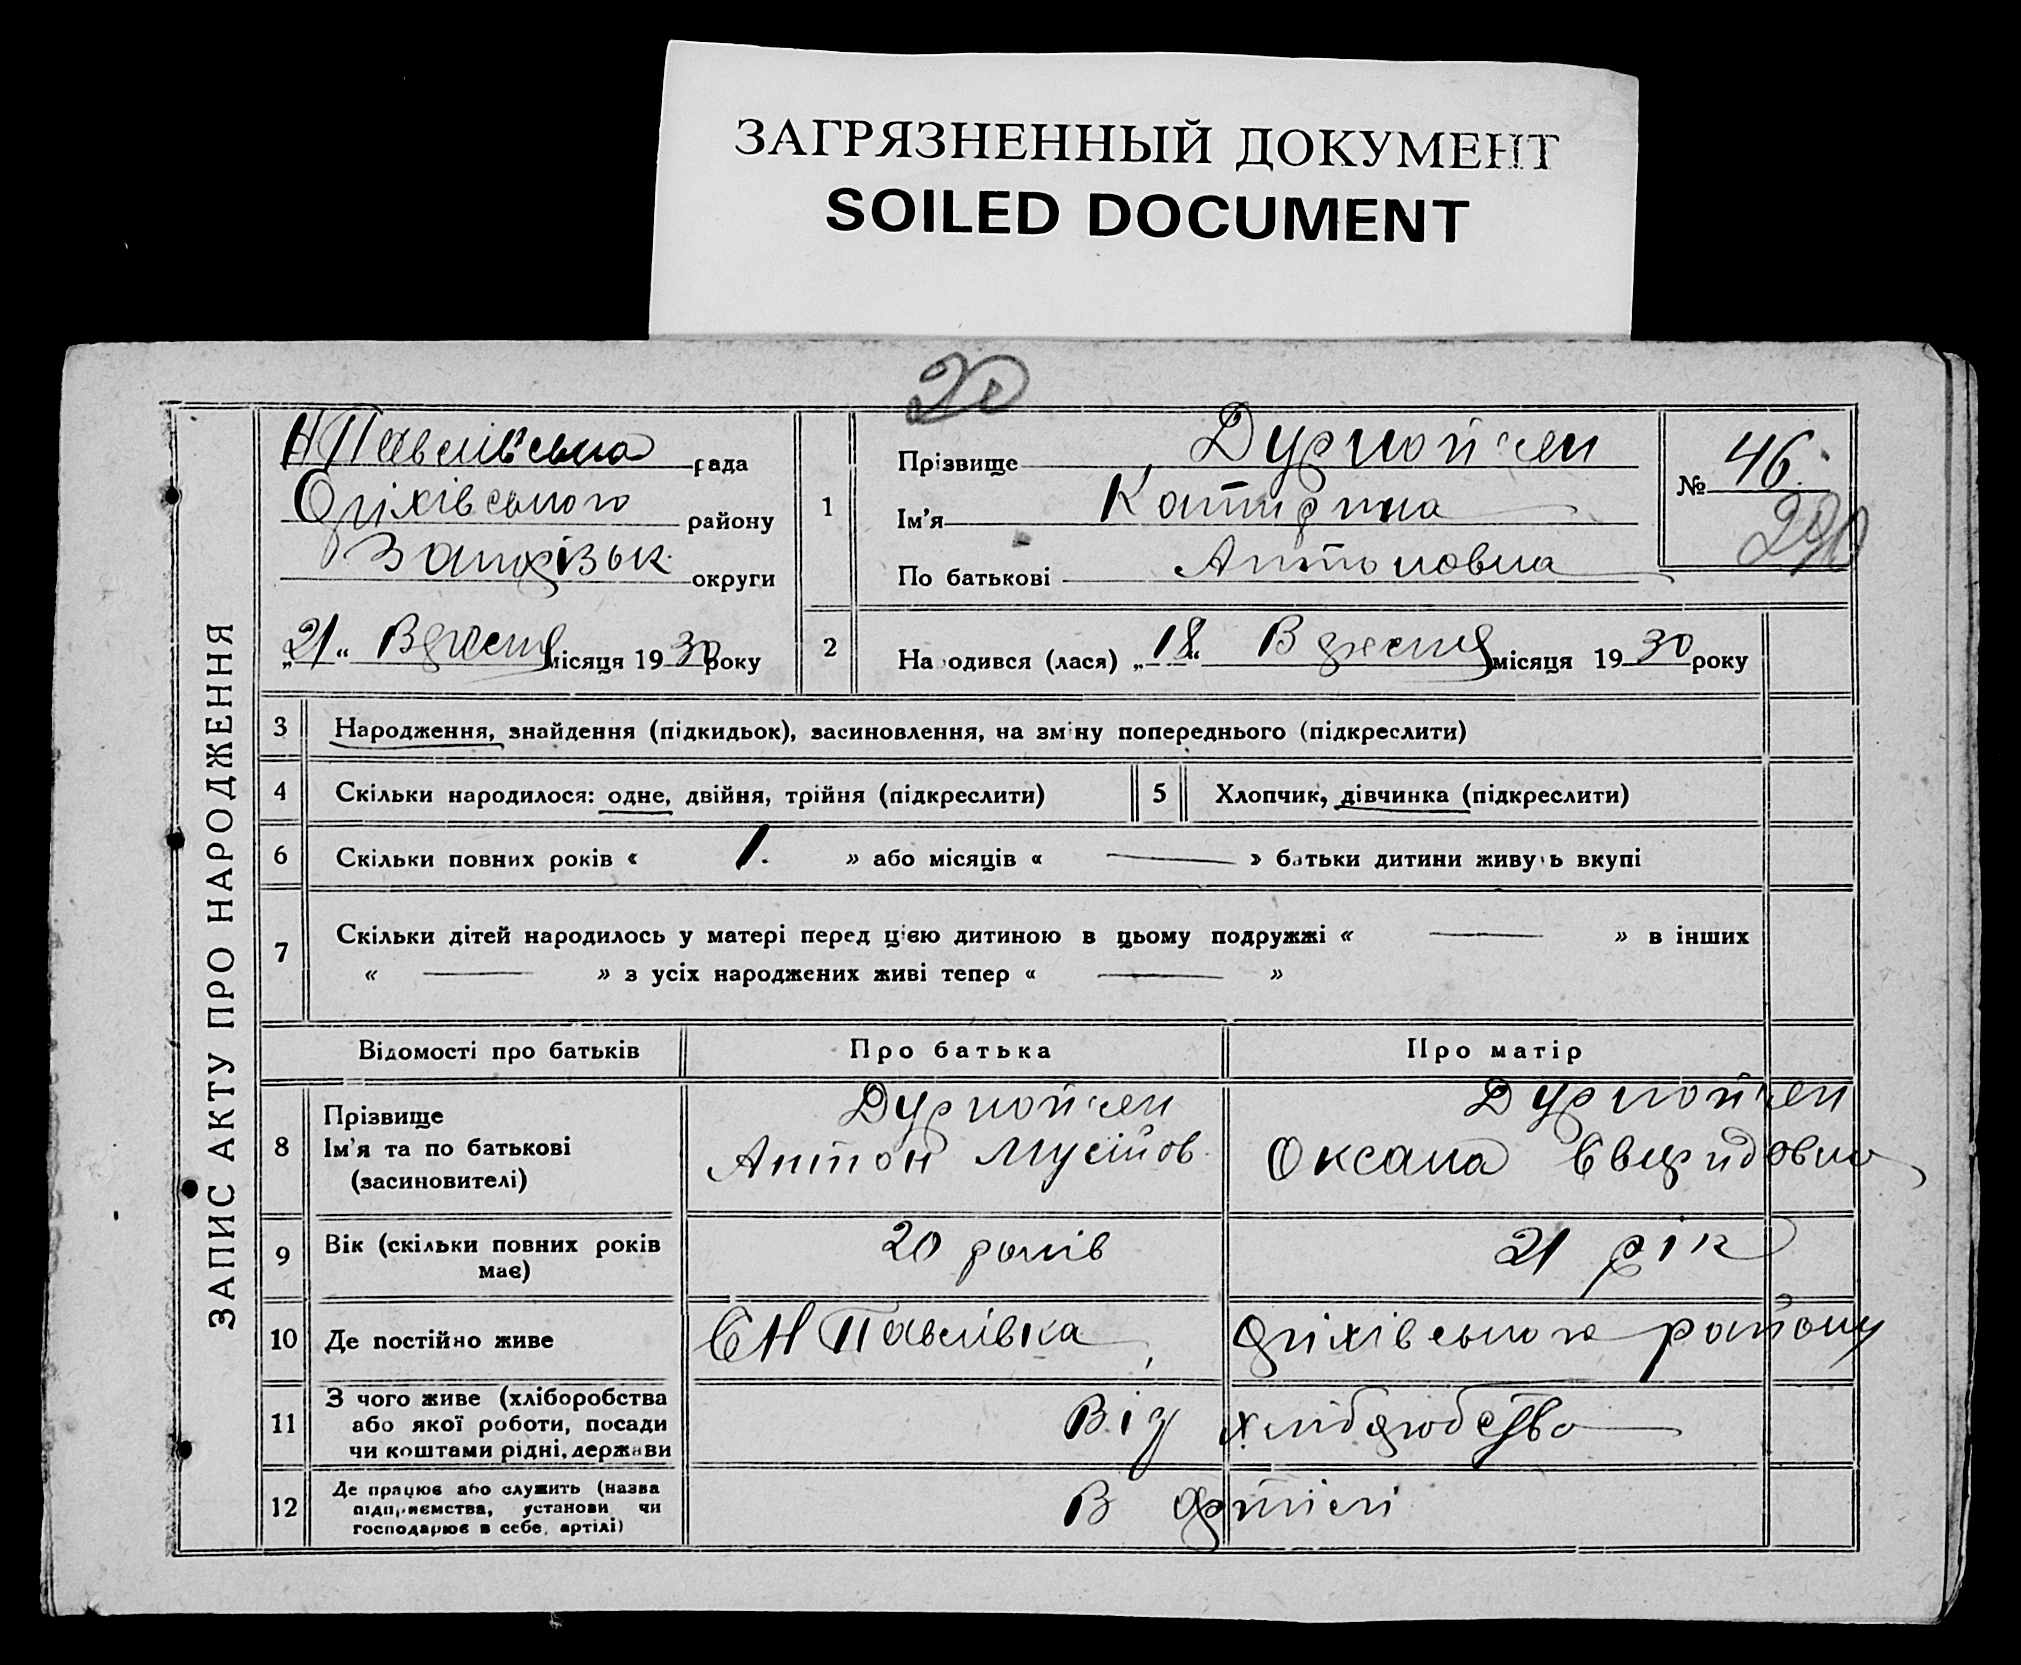 ЗАГРЯЗНЕННЫЙ ДОКУМЕНТ
SOILED DOCUMENT
20
ЗАПИС АКТУ ПРО НАРОДЖЕННЯ
Н Павлівська рада
Оріхівського району
Запорізьк. округи
„21“ Вересня місяця 1930 року
1
Прізвище
Ім'я Катирина
По батькові Антоновна
№ 46.
290
2
Народився (лася) „18“ Вересня місяця 1930 року
3 Народження, знайдення (підкидьок), засиновлення, на зміну попереднього (підкреслити)
4 Скільки народилося: одне, двійня, трійня (підкреслити)
5 Хлопчик, дівчинка (підкреслити)
6 Скільки повних років « 1. » або місяців « — » батьки дитини живуть вкупі
7 Скільки дітей народилось у матері перед цією дитиною в цьому подружжі « — » в інших
« — » з усіх народжених живі тепер « — »
Відомості про батьків Про батька Про матір
8 Прізвище
Ім'я та по батькові Антон Мусійов. Оксана
(засиновителі)
9 Вік (скільки повних років має) 20 років 21 рік
10 Де постійно живе С Н Павлівка, Оріхівського району
11 З чого живе (хліборобства
або якої роботи, посади
чи коштами рідні, держави
Від хліборобства
12 Де працює або служить (назва
підприємства, установи чи
господарює в себе, артілі)
В артілі